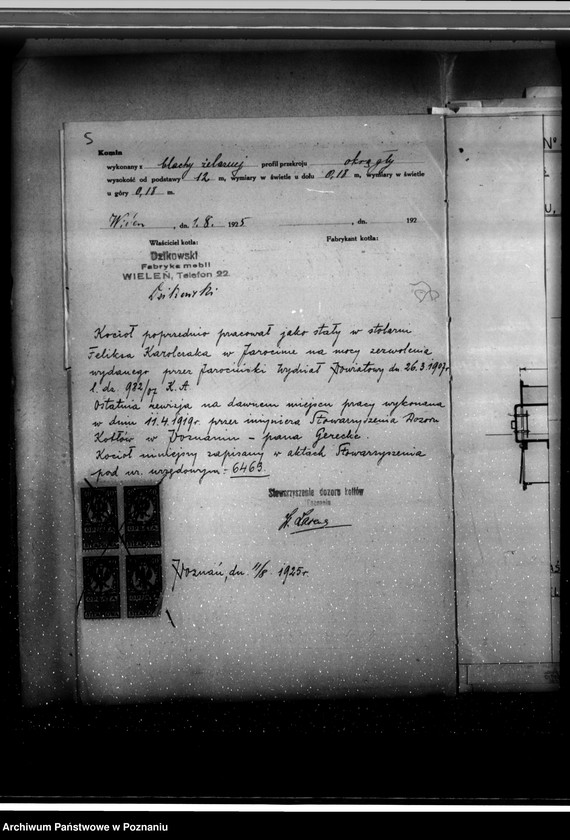 5
Komin
wykonany z blachy żelaznej profil przekroju okrągły
wysokość od podstawy 12 m, wymiary w świetle u dołu 0,18 m, wymiary w świetle
u góry 0,18 m.
Wieleń, dn. 1.8. 1925 , dn. 192
Właściciel kotła: Fabrykant kotła:
Dzikowski
Fabryka mebli
WIELEŃ, Telefon 22
Dzikowski
Kocioł poprzednio pracował jako stały w stolarni
Feliksa Karolczaka w Jarocinie na mocy zezwolenia
wydanego przez Jarociński Wydział Powiatowy dn. 26.3.1907r.
l. dz. 982/07 K. A.
Ostatnia rewizja na dawnem miejscu pracy wykonana
w dniu 11.4.1919r. przez inżyniera Stowarzyszenia Dozoru
Kotłów w Poznaniu – pana Gerecke.
Kocioł niniejszy zapisany w aktach Stowarzyszenia
pod nr. urzędowym: 6469.
Stowarzyszenie dozoru kotłów
Poznań, dn. 11/8 1925r
N°
U,
Archiwum Państwowe w Poznaniu